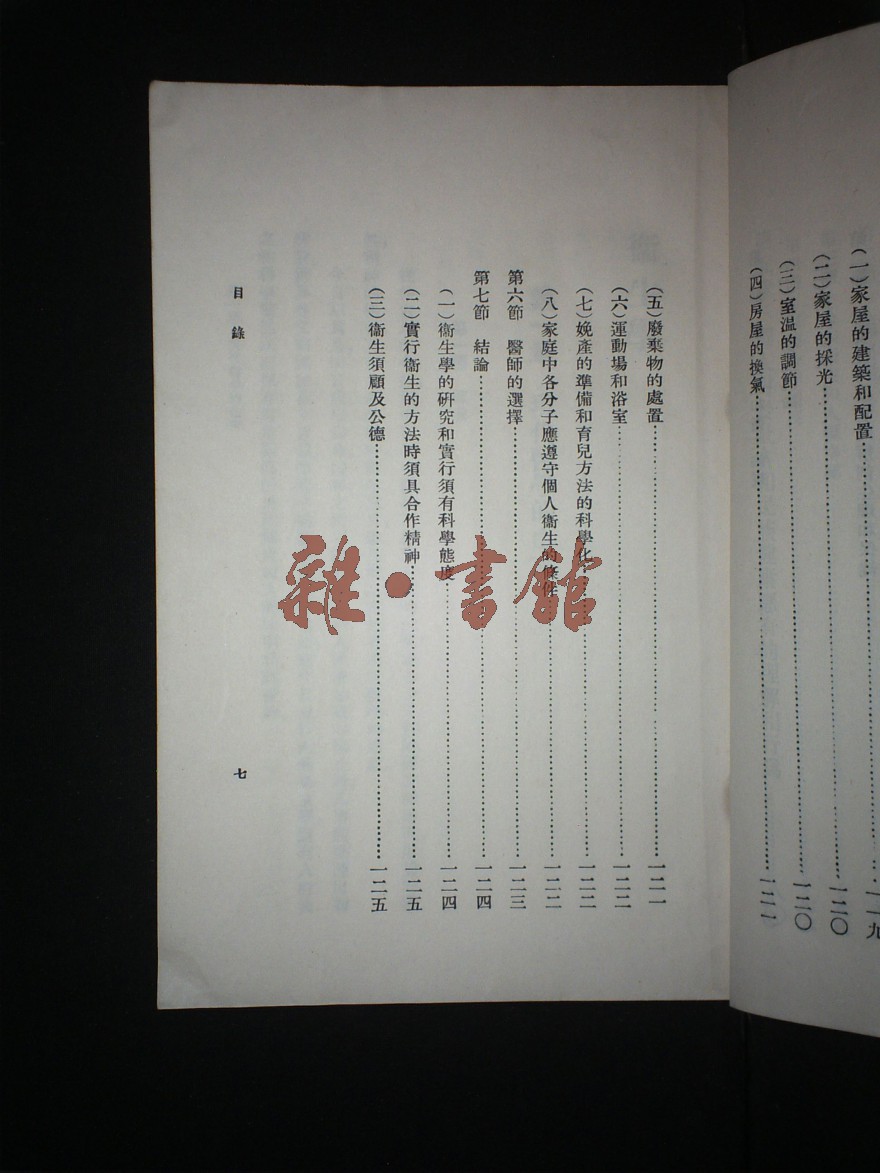 (一)家屋的建築和配置…………一一九
(二)家屋的採光…………一二〇
(三)室溫的調節…………一二〇
(四)房屋的換氣…………一二一
(五)廢棄物的處置…………一二一
(六)運動場和浴室…………一二二
(七)娩產的準備和育兒方法的科學化…………一二二
(八)家庭中各分子應遵守個人衞生的條件…………一二二
第六節 醫師的選擇…………一二三
第七節 結論…………一二四
(一)衞生學的研究和實行須有科學態度…………一二四
(二)實行衞生的方法時須具合作精神…………一二五
(三)衞生須顧及公德…………一二五
目錄
七
雜·書館